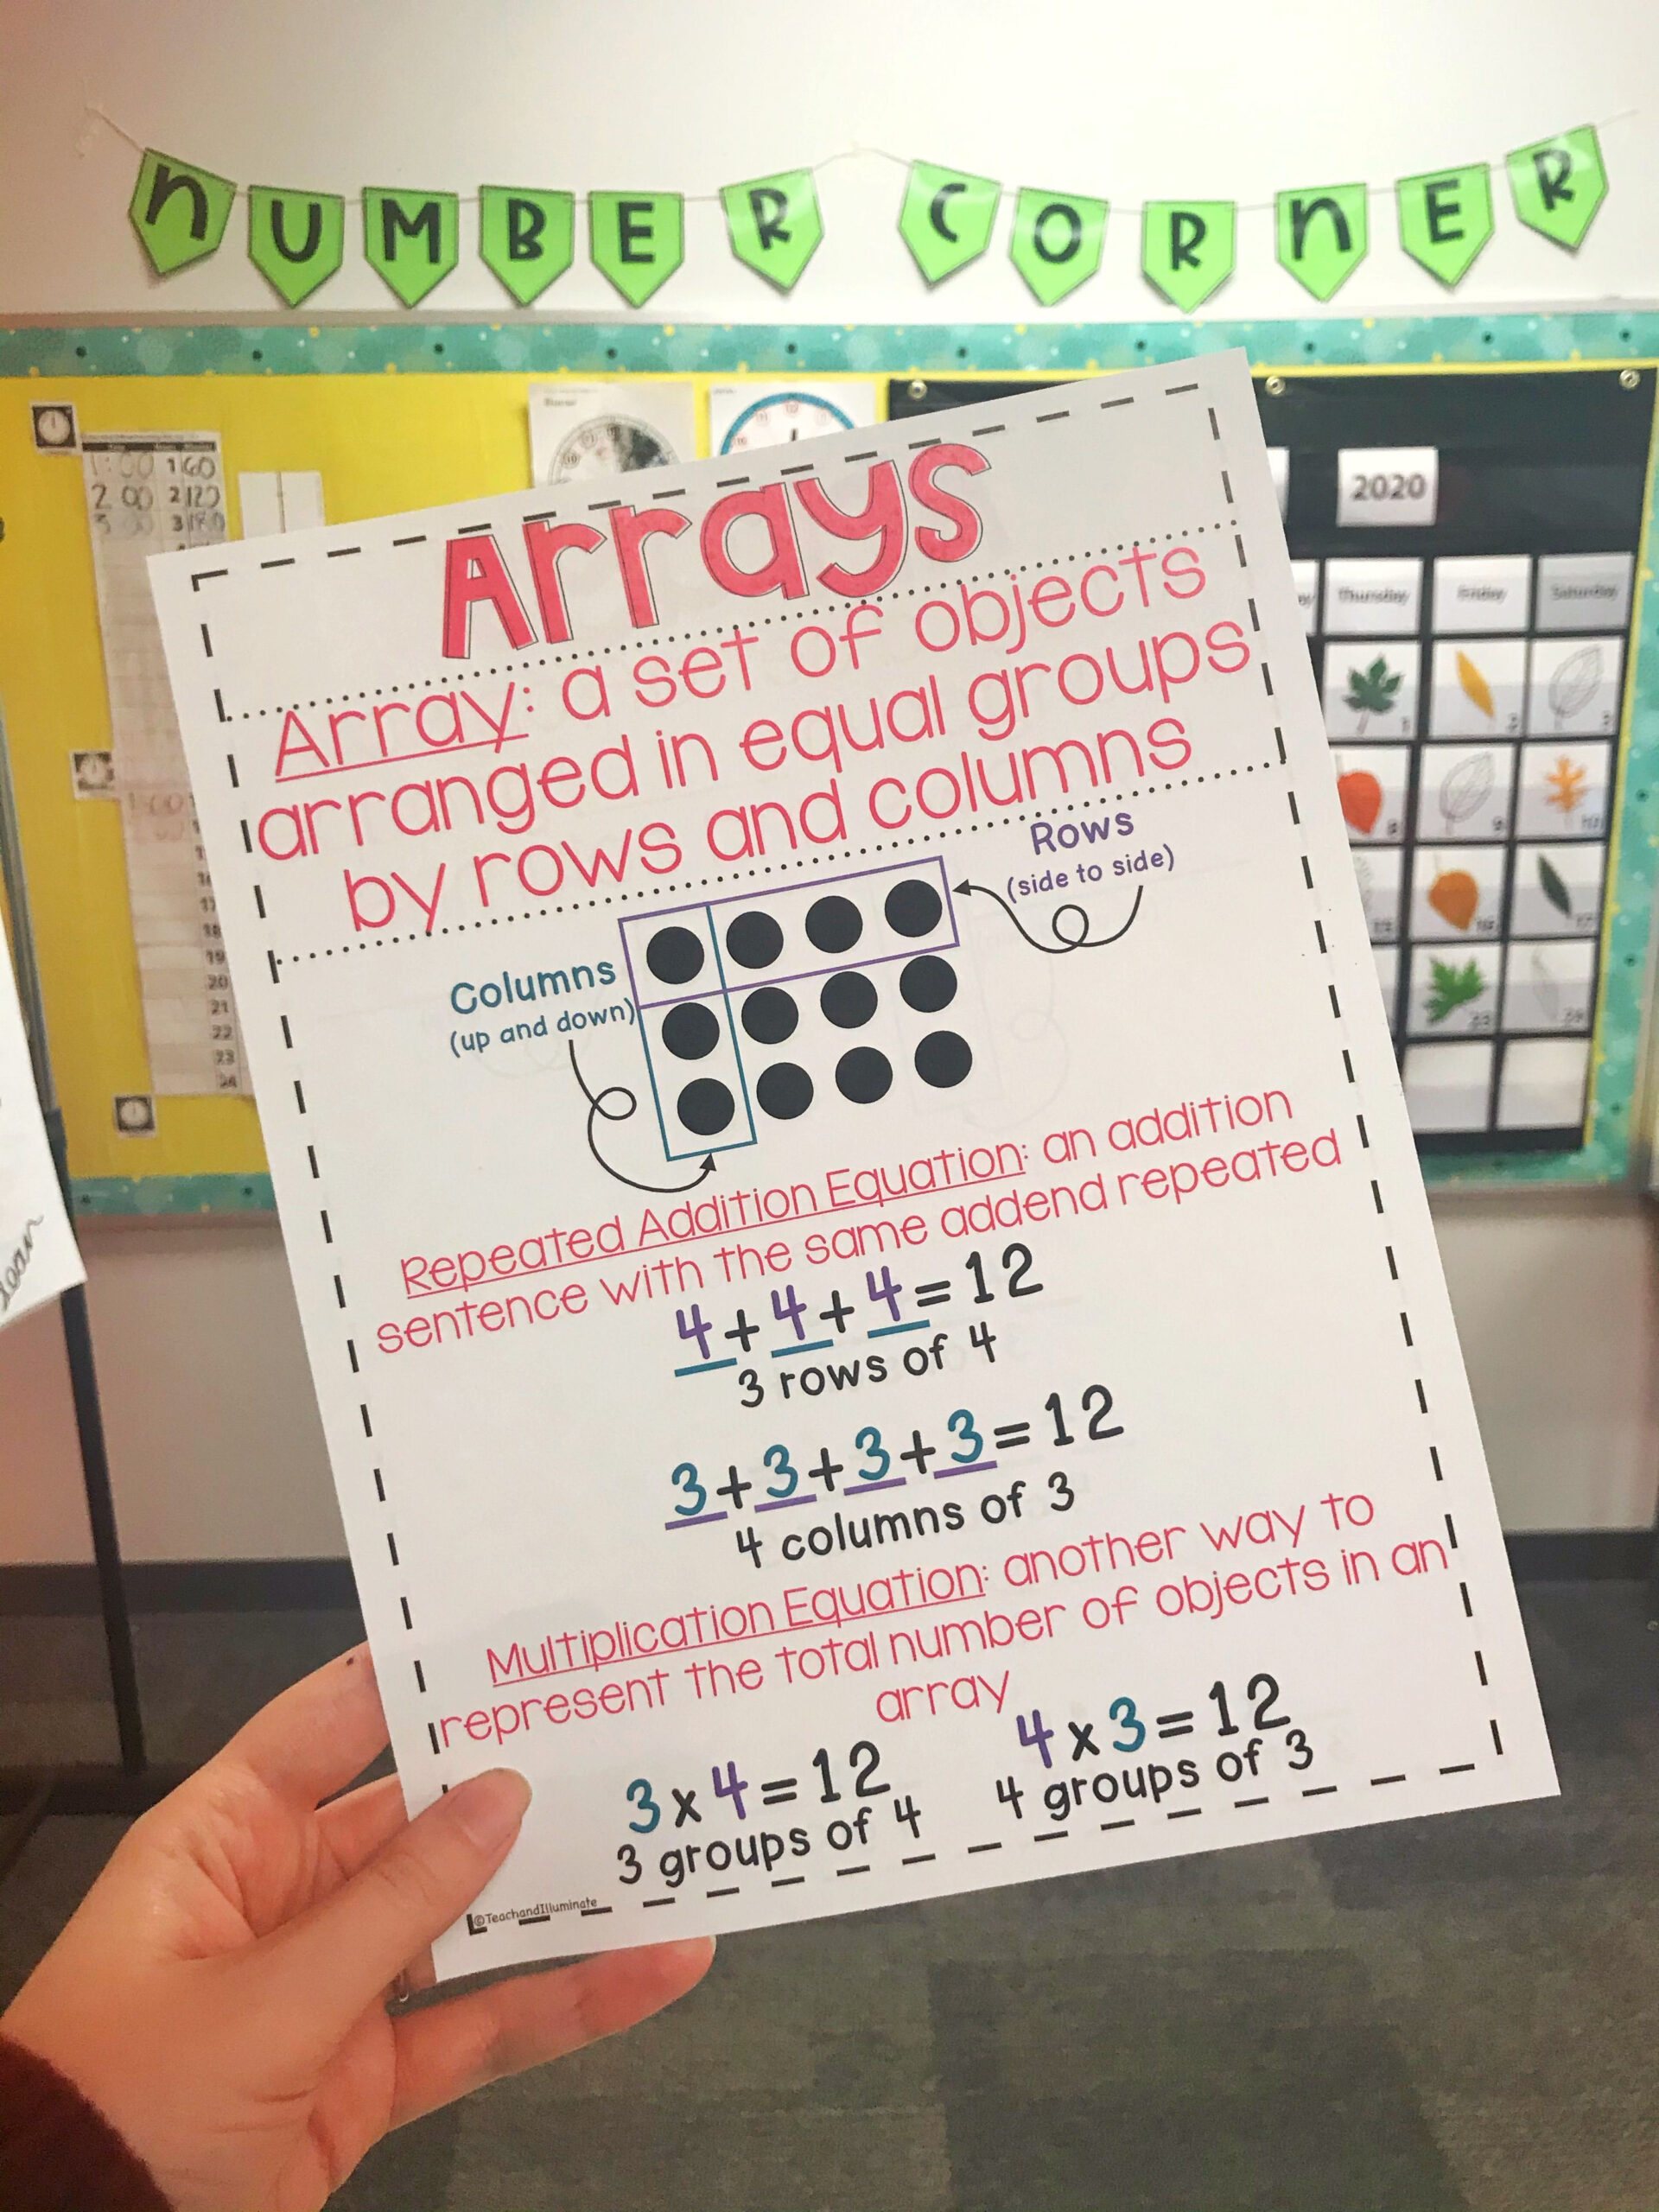 NUMBER CORNER
1:00 1 60
2:00 2 120
3 180
2020
Thursday Friday Saturday
Arrays
Array: a set of objects
arranged in equal groups
by rows and columns
Rows
(side to side)
Columns
(up and down)
Repeated Addition Equation: an addition
sentence with the same addend repeated
4+4+4=12
3 rows of 4
3+3+3+3=12
4 columns of 3
Multiplication Equation: another way to
represent the total number of objects in an
array
3x4=12
3 groups of 4
4x3=12
4 groups of 3
©TeachandIlluminate
18
19
20
21
22
23
24
1 2 3
8 9 10
15 16 17